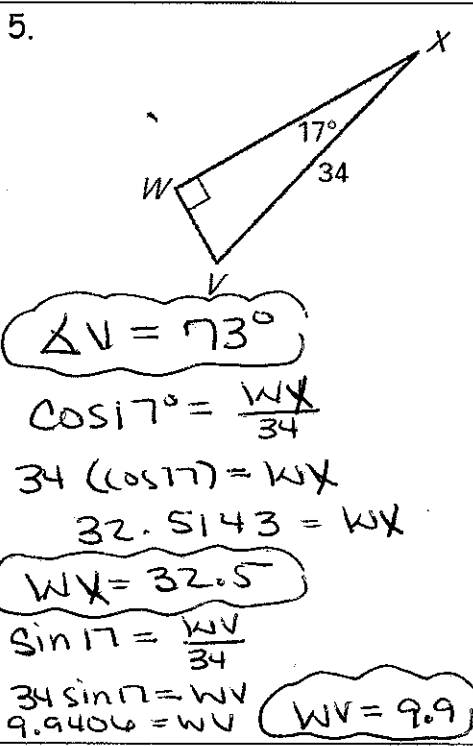 5.
X
17°
34
W
V
∡V = 73°
cos17° = WX/34
34 (cos17) = WX
32.5143 = WX
WX = 32.5
Sin 17 = WV/34
34 sin17 = WV
9.9406 = WV
WV = 9.9